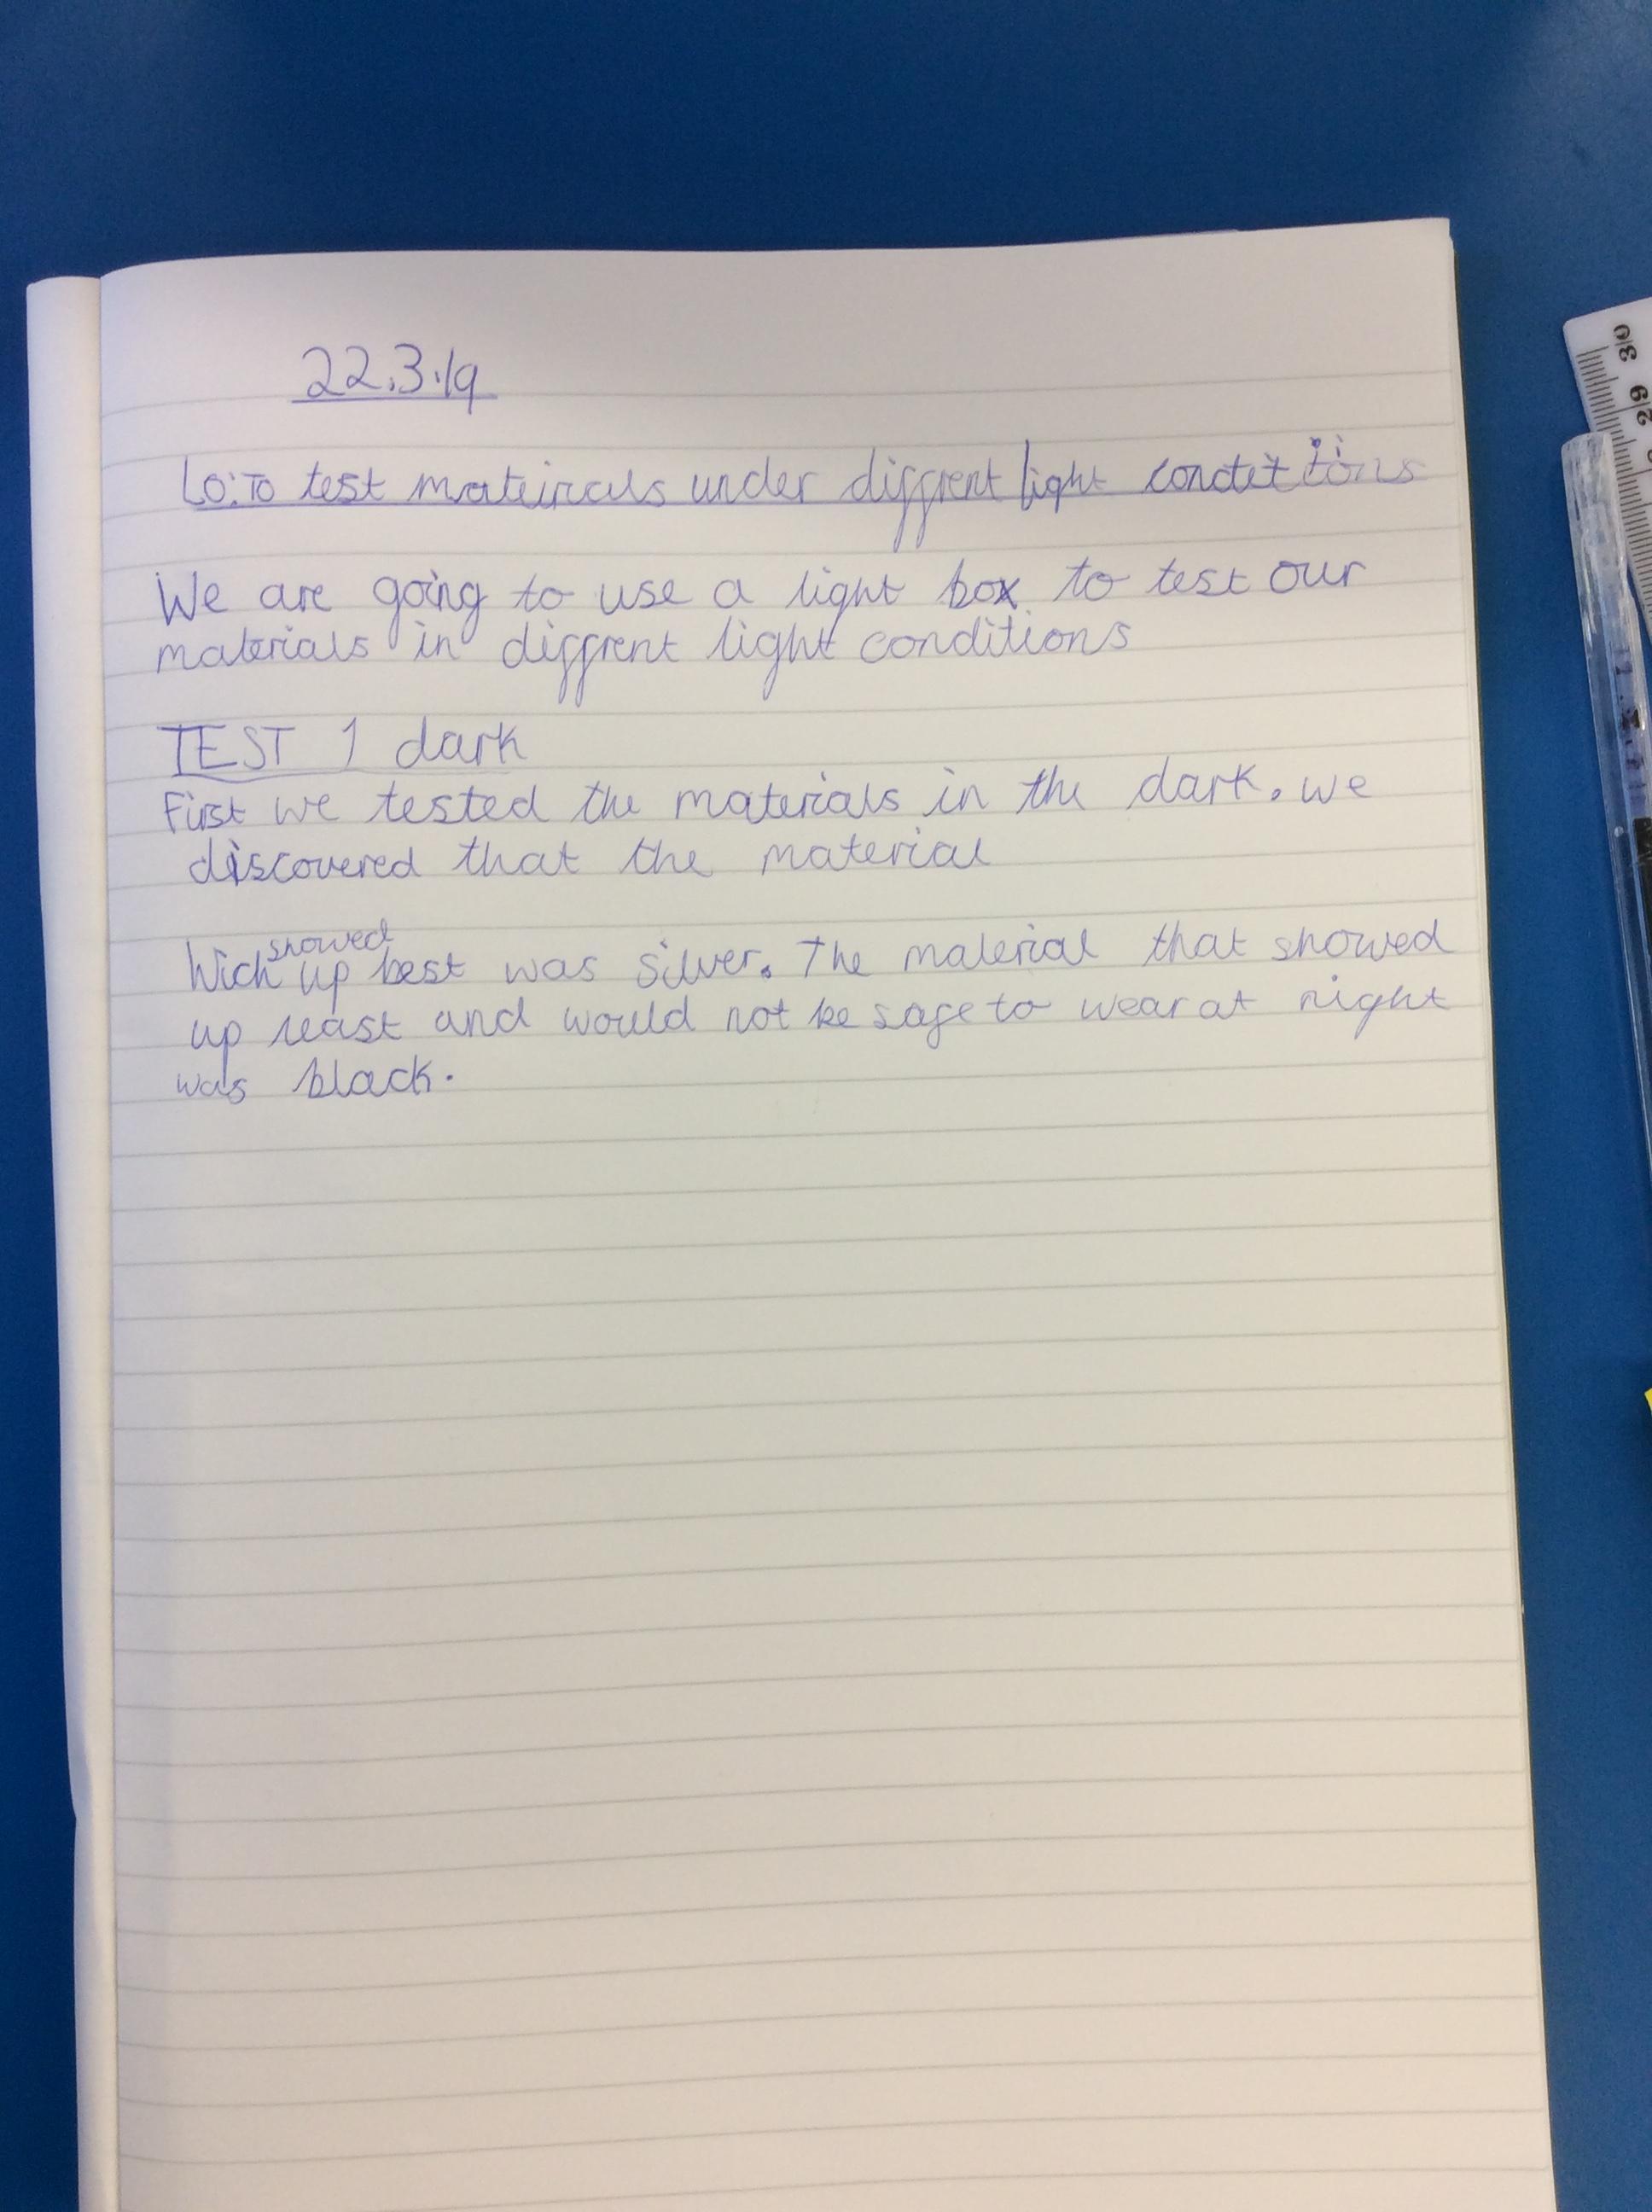 22.3.19
LO: To test mateirals under diffrent light condetitions
We are going to use a light box to test our
materials in diffrent light conditions
TEST 1 dark
First we tested the materials in the dark. we
discovered that the material
showed
Wich up best was silver. The material that showed
up least and would not be safe to wear at night
was black.
30
29